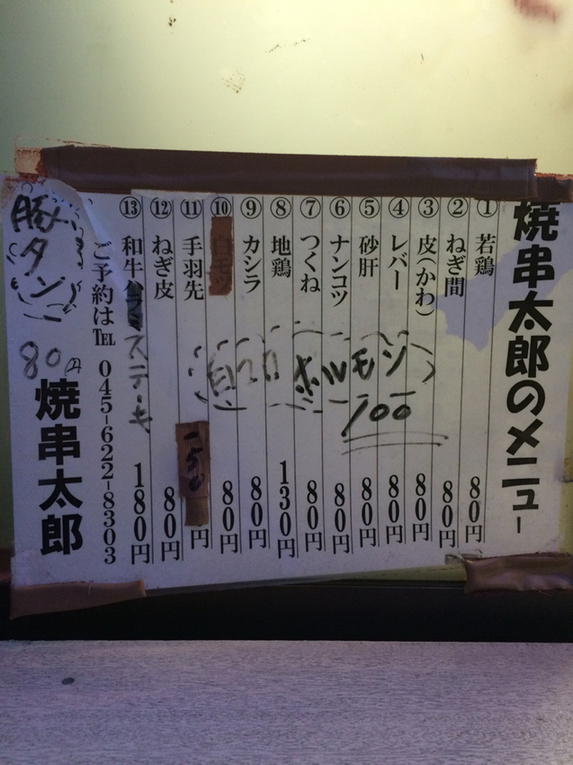 焼串太郎のメニュー
① 若鶏 80円
② ねぎ間 80円
③ 皮(かわ) 80円
④ レバー 80円
⑤ 砂肝 80円
⑥ ナンコツ 80円
⑦ つくね 80円
⑧ 地鶏 130円
⑨ カシラ 80円
⑩ 白モツ 80円
⑪ 手羽先 150円
⑫ ねぎ皮 80円
⑬ 和牛 ステーキ 180円
白コロ ホルモン
100
ご予約は℡ 045-622-8303
焼串太郎
豚タン
80円